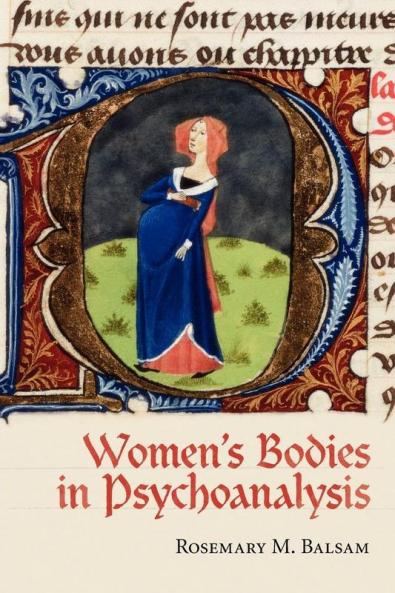 sins qui ne sont pas meure
auons ou chappitre
la
Women's Bodies
in Psychoanalysis
Rosemary M. Balsam